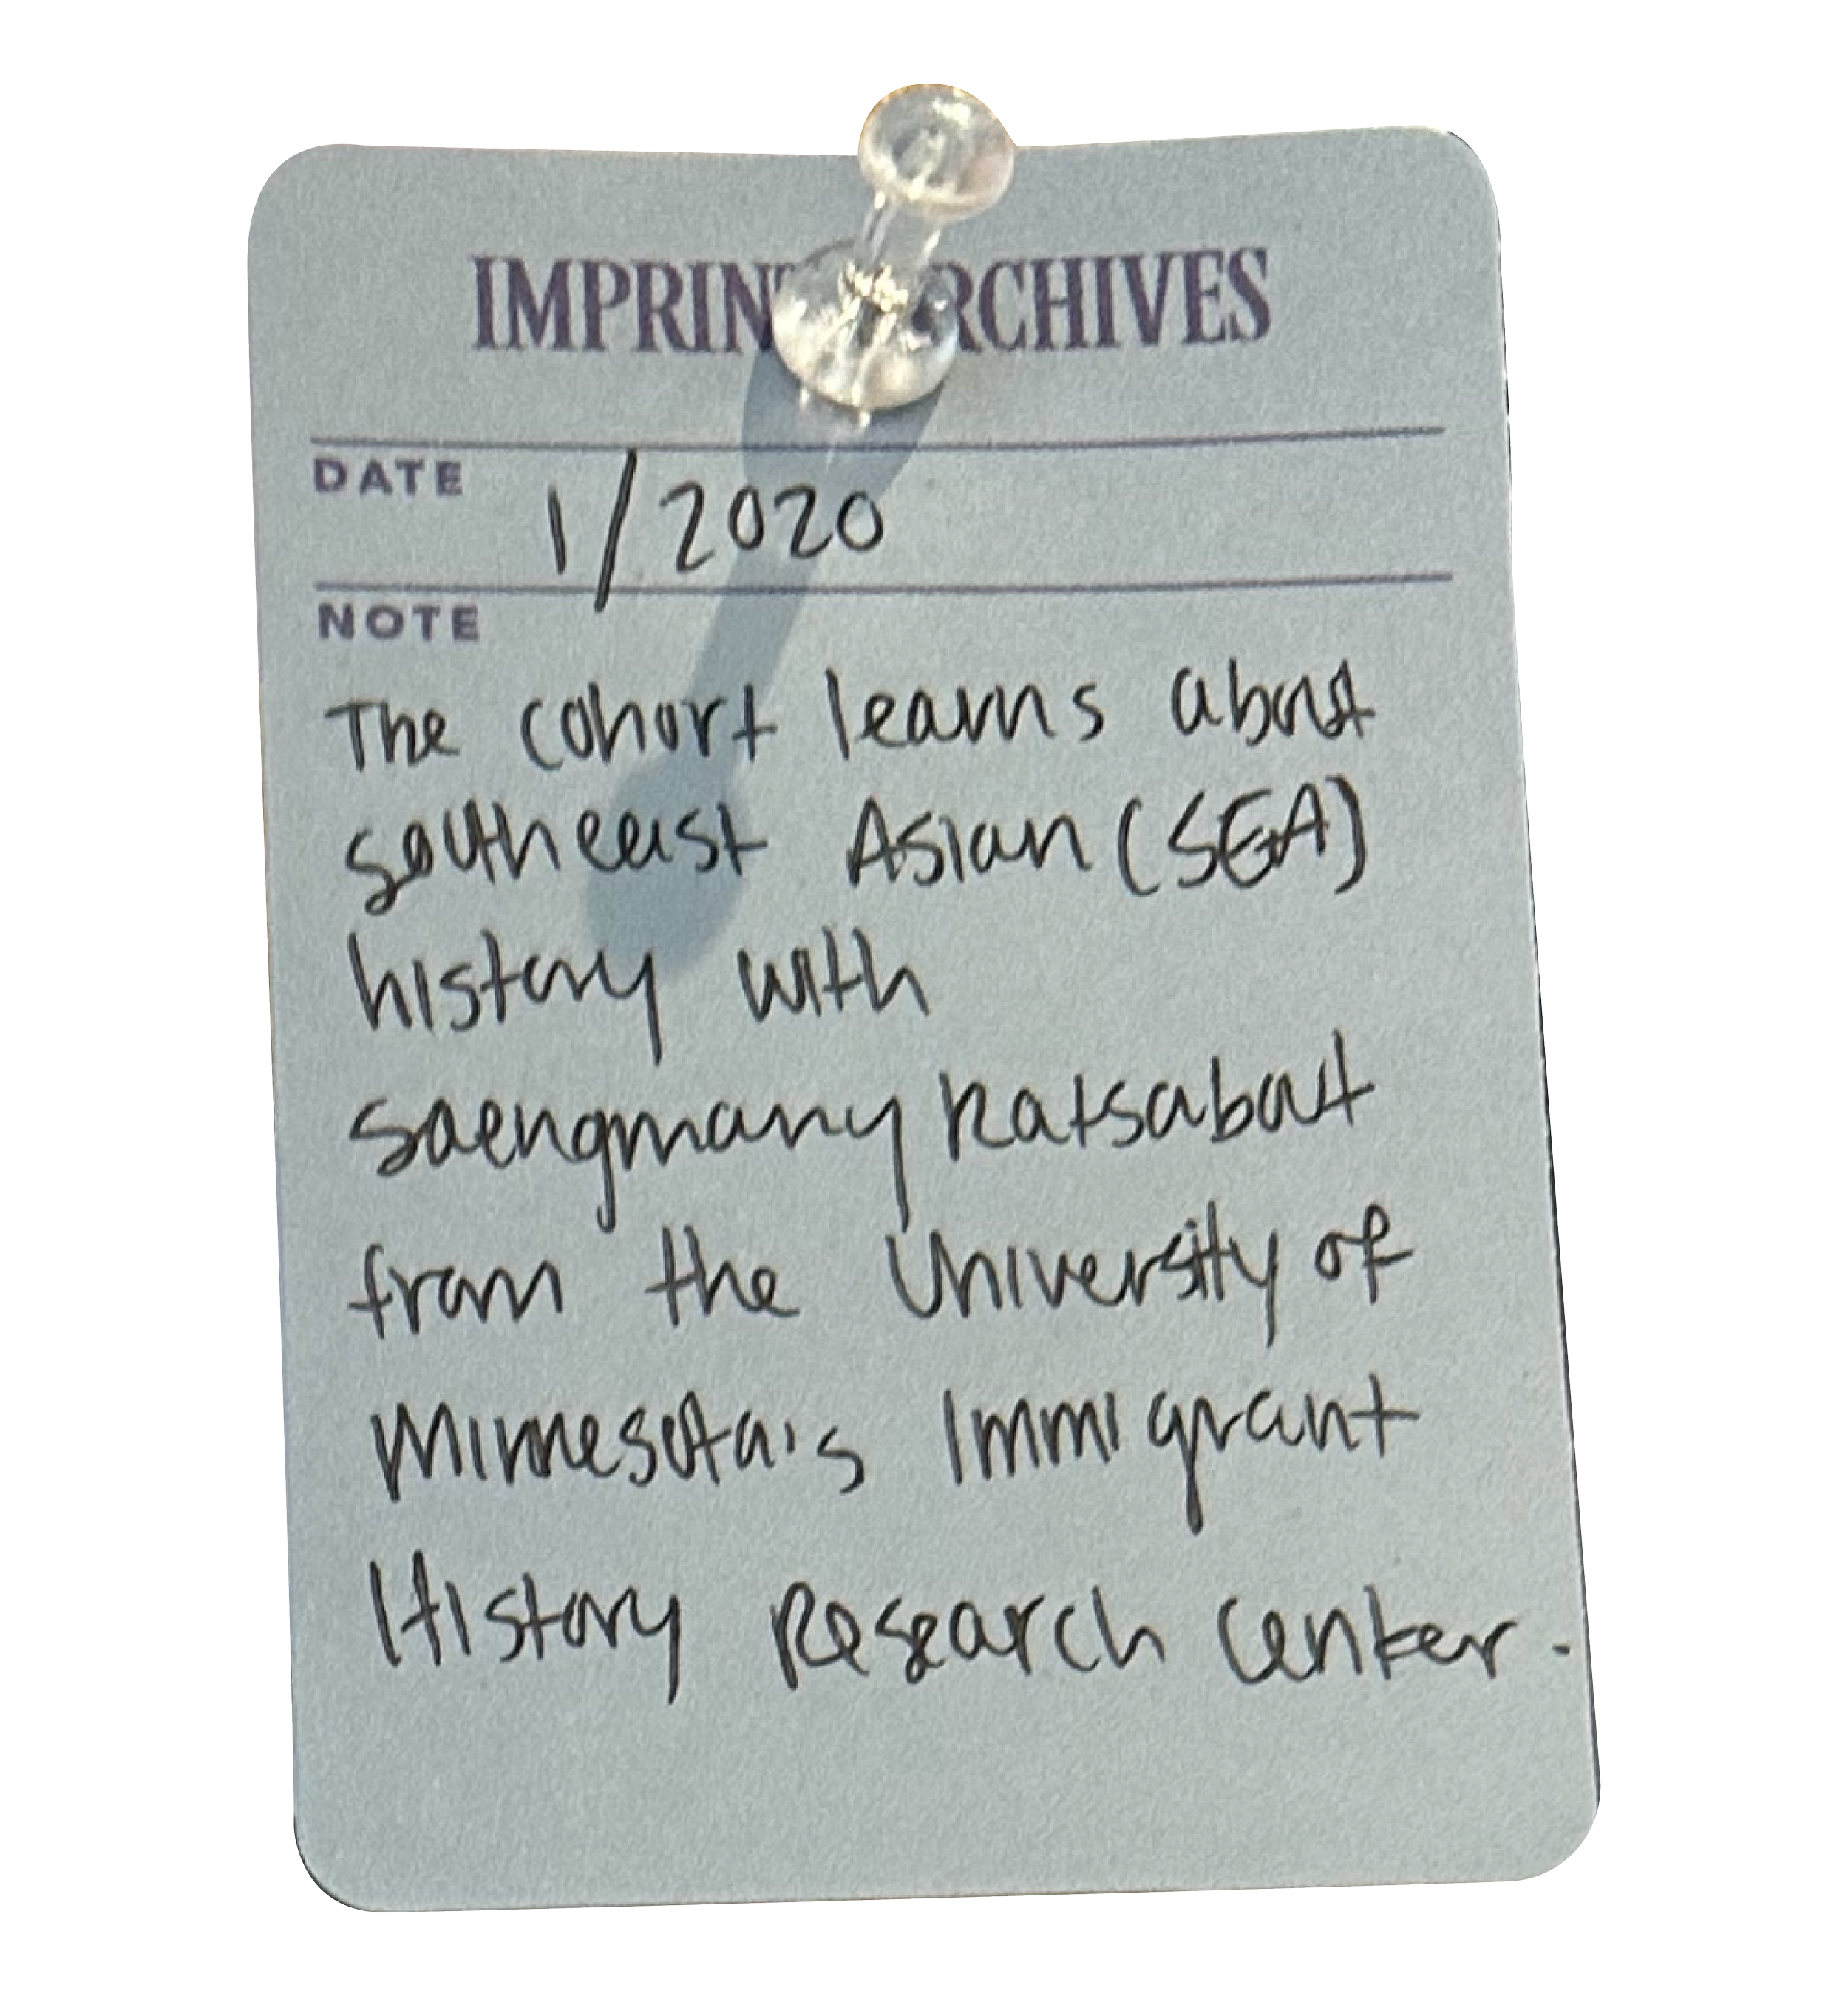 IMPRINT ARCHIVES
DATE 1/2020
NOTE
The cohort learns about
southeast Asian (SEA)
history with
Saengmany Ratsabout
from the University of
Minnesota's Immigrant
History Research Center.